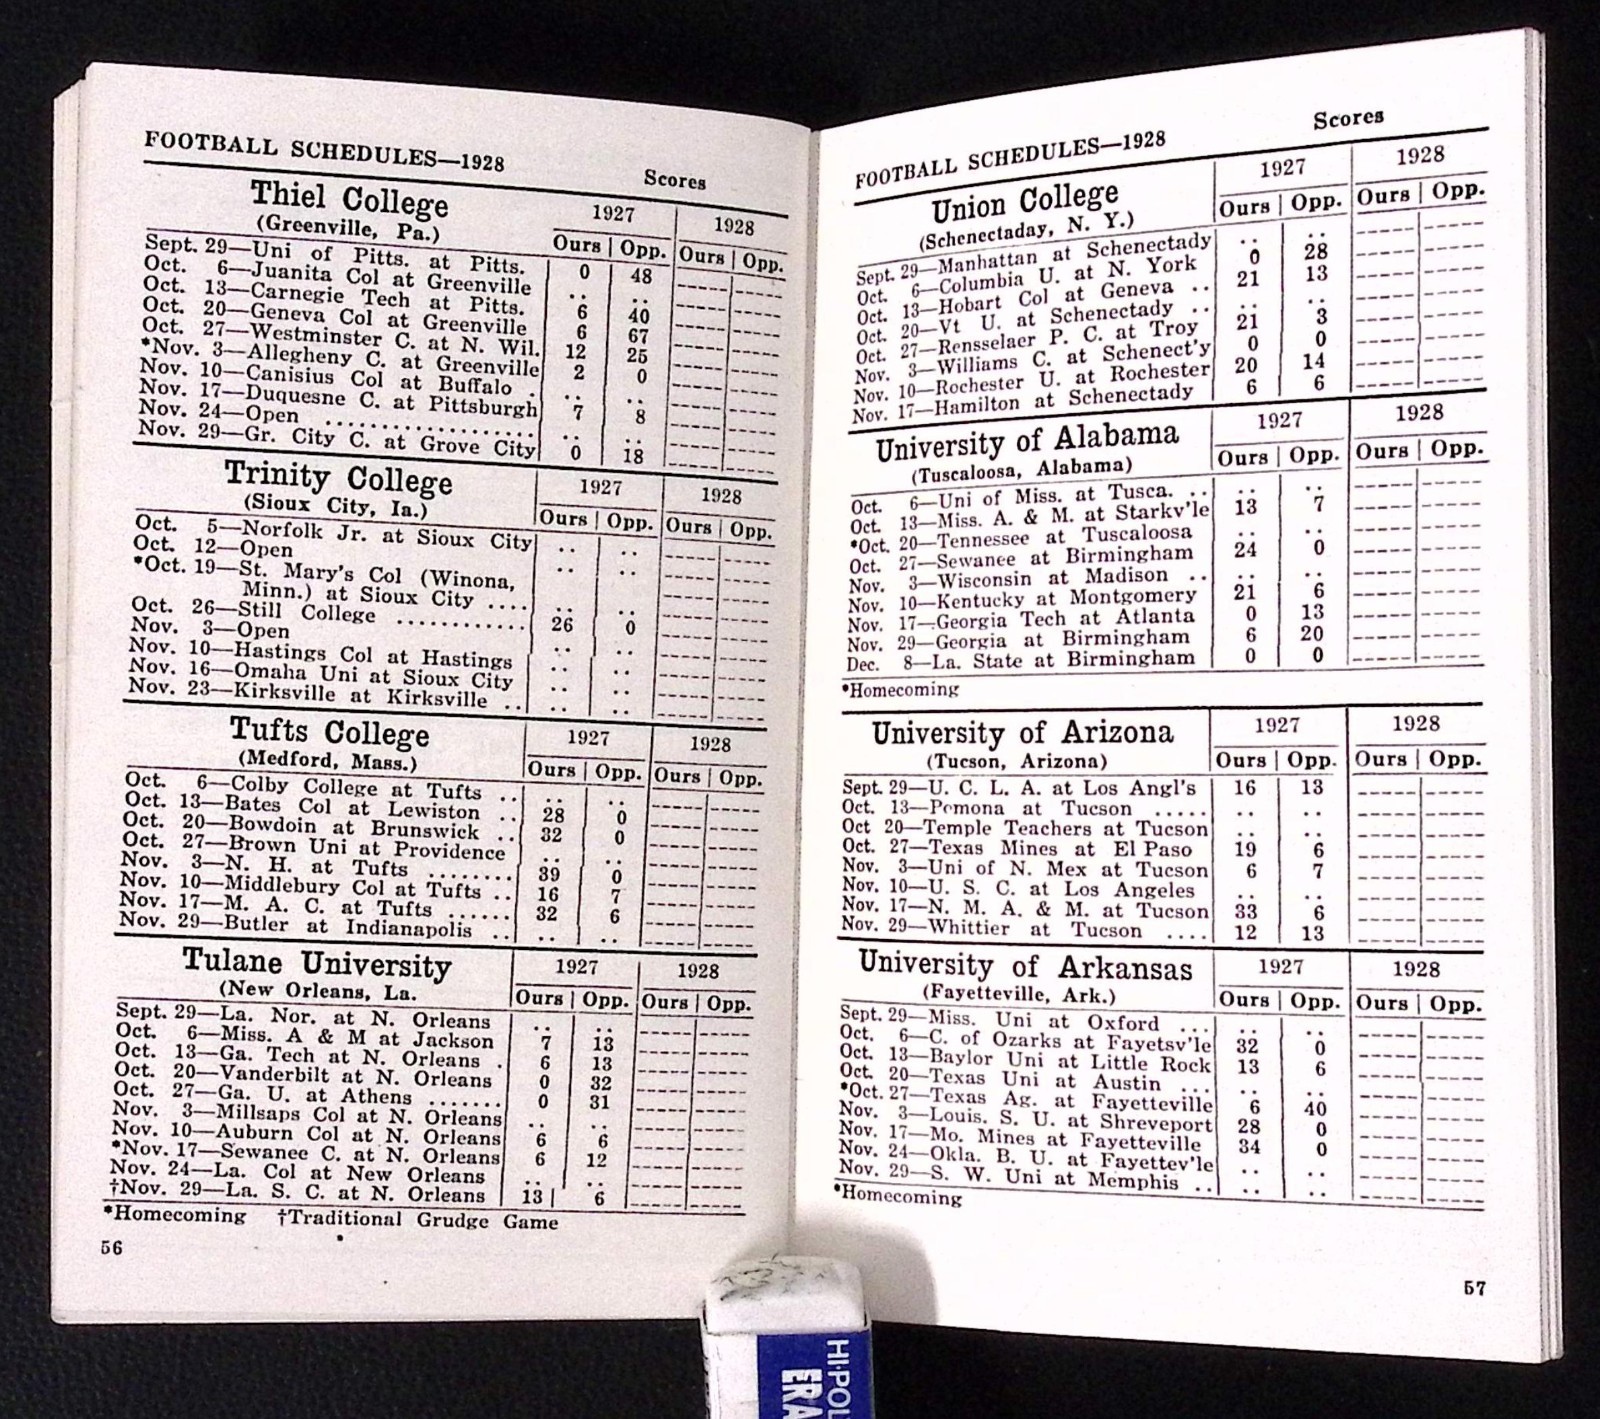 FOOTBALL SCHEDULES—1928 Scores
Thiel College 1927 1928
(Greenville, Pa.) Ours | Opp. Ours | Opp.
Sept. 29—Uni of Pitts. at Pitts. 0 48
Oct. 6—Juanita Col at Greenville .. ..
Oct. 13—Carnegie Tech at Pitts. 6 40
Oct. 20—Geneva Col at Greenville 6 67
Oct. 27—Westminster C. at N. Wil. 12 25
*Nov. 3—Allegheny C. at Greenville 2 0
Nov. 10—Canisius Col at Buffalo . .. ..
Nov. 17—Duquesne C. at Pittsburgh 7 8
Nov. 24—Open .................. .. ..
Nov. 29—Gr. City C. at Grove City 0 18
Trinity College 1927 1928
(Sioux City, Ia.) Ours | Opp. Ours | Opp.
Oct. 5—Norfolk Jr. at Sioux City .. ..
Oct. 12—Open .. ..
*Oct. 19—St. Mary's Col (Winona,
Minn.) at Sioux City .... .. ..
Oct. 26—Still College ............ 26 0
Nov. 3—Open .. ..
Nov. 10—Hastings Col at Hastings .. ..
Nov. 16—Omaha Uni at Sioux City .. ..
Nov. 23—Kirksville at Kirksville .. .. ..
Tufts College 1927 1928
(Medford, Mass.) Ours | Opp. Ours | Opp.
Oct. 6—Colby College at Tufts .. .. ..
Oct. 13—Bates Col at Lewiston .. 28 0
Oct. 20—Bowdoin at Brunswick .. 32 0
Oct. 27—Brown Uni at Providence .. ..
Nov. 3—N. H. at Tufts ........ 39 0
Nov. 10—Middlebury Col at Tufts .. 16 7
Nov. 17—M. A. C. at Tufts ...... 32 6
Nov. 29—Butler at Indianapolis .. .. ..
Tulane University 1927 1928
(New Orleans, La. Ours | Opp. Ours | Opp.
Sept. 29—La. Nor. at N. Orleans .. ..
Oct. 6—Miss. A & M at Jackson 7 13
Oct. 13—Ga. Tech at N. Orleans . 6 13
Oct. 20—Vanderbilt at N. Orleans 0 32
Oct. 27—Ga. U. at Athens ....... 0 31
Nov. 3—Millsaps Col at N. Orleans .. ..
Nov. 10—Auburn Col at N. Orleans 6 6
*Nov. 17—Sewanee C. at N. Orleans 6 12
Nov. 24—La. Col at New Orleans .. ..
†Nov. 29—La. S. C. at N. Orleans 13 | 6
*Homecoming †Traditional Grudge Game
56
FOOTBALL SCHEDULES—1928 Scores
Union College 1927 1928
(Schenectaday, N. Y.) Ours | Opp. Ours | Opp.
Sept. 29—Manhattan at Schenectady .. ..
Oct. 6—Columbia U. at N. York 0 28
Oct. 13—Hobart Col at Geneva .. 21 13
Oct. 20—Vt U. at Schenectady .. .. ..
Oct. 27—Rensselaer P. C. at Troy 21 3
Nov. 3—Williams C. at Schenect'y 0 0
Nov. 10—Rochester U. at Rochester 20 14
Nov. 17—Hamilton at Schenectady 6 6
University of Alabama 1927 1928
(Tuscaloosa, Alabama) Ours | Opp. Ours | Opp.
Oct. 6—Uni of Miss. at Tusca. .. .. ..
Oct. 13—Miss. A. & M. at Starkv'le 13 7
*Oct. 20—Tennessee at Tuscaloosa .. ..
Oct. 27—Sewanee at Birmingham 24 0
Nov. 3—Wisconsin at Madison .. .. ..
Nov. 10—Kentucky at Montgomery 21 6
Nov. 17—Georgia Tech at Atlanta 0 13
Nov. 29—Georgia at Birmingham 6 20
Dec. 8—La. State at Birmingham 0 0
*Homecoming
University of Arizona 1927 1928
(Tucson, Arizona) Ours | Opp. Ours | Opp.
Sept. 29—U. C. L. A. at Los Angl's 16 13
Oct. 13—Pomona at Tucson ..... .. ..
Oct 20—Temple Teachers at Tucson .. ..
Oct. 27—Texas Mines at El Paso 19 6
Nov. 3—Uni of N. Mex at Tucson 6 7
Nov. 10—U. S. C. at Los Angeles .. ..
Nov. 17—N. M. A. & M. at Tucson 33 6
Nov. 29—Whittier at Tucson .... 12 13
University of Arkansas 1927 1928
(Fayetteville, Ark.) Ours | Opp. Ours | Opp.
Sept. 29—Miss. Uni at Oxford ... .. ..
Oct. 6—C. of Ozarks at Fayetsv'le 32 0
Oct. 13—Baylor Uni at Little Rock 13 6
Oct. 20—Texas Uni at Austin ... .. ..
*Oct. 27—Texas Ag. at Fayetteville 6 40
Nov. 3—Louis. S. U. at Shreveport 28 0
Nov. 17—Mo. Mines at Fayetteville 34 0
Nov. 24—Okla. B. U. at Fayettev'le .. ..
Nov. 29—S. W. Uni at Memphis .. .. ..
*Homecoming
57
HI-POL
ERA